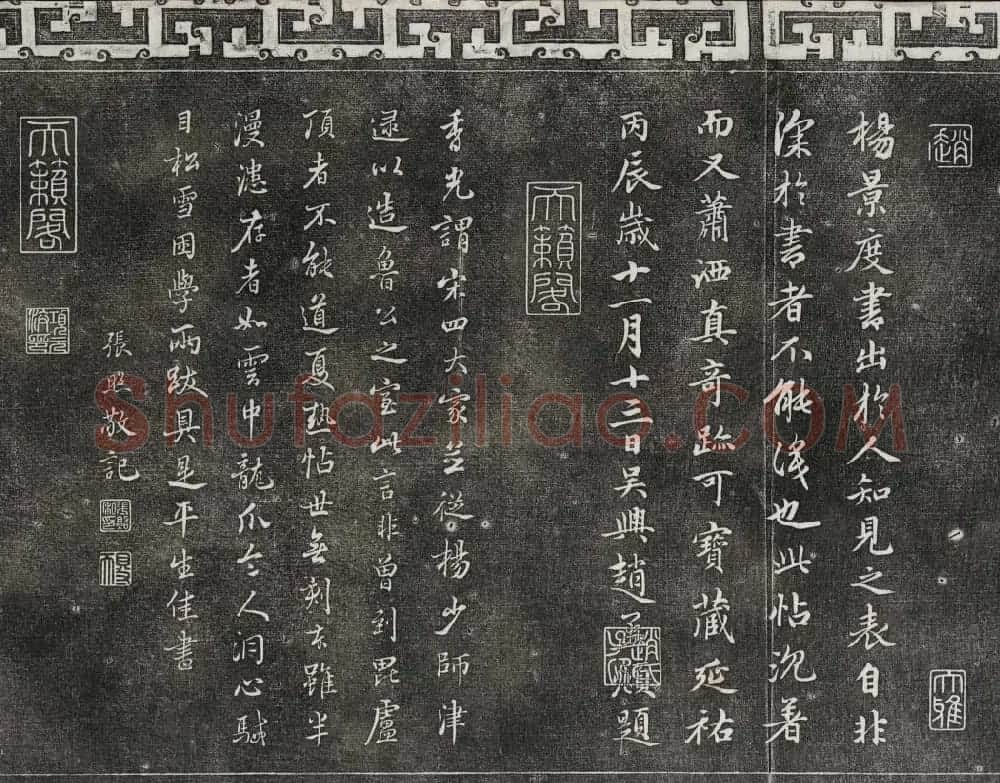 趙
大雅
楊景度書出於人知見之表自非
深於書者不能淺也此帖沉着
而又蕭洒真奇跡可寶藏延祐
丙辰歲十一月十三日吳興趙孟頫題
趙氏子昂
天籟閣
香光謂宋四大家並從楊少師津
逮以造魯公之室此言非曾到毘盧
頂者不能道夏熱帖世無刻本雖半
漫漶存者如雲中龍爪令人洞心駴
目松雪困學兩跋具是平生佳書
張照敬記
天籟閣
Shufaziliao.COM